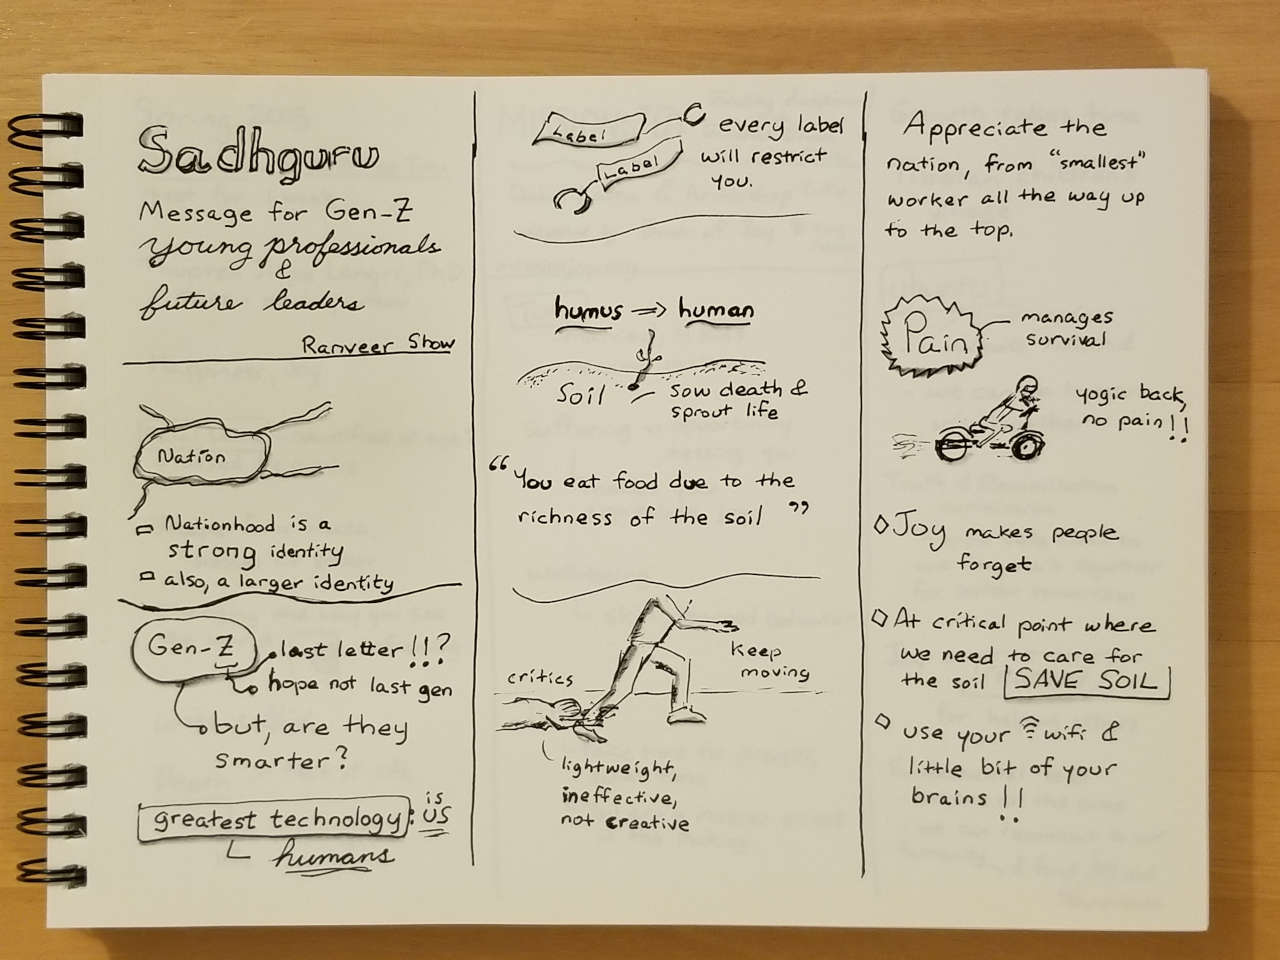 Sadhguru
Message for Gen-Z
young professionals
&
future leaders
Ranveer Show
Nation
Nationhood is a
strong identity
also, a larger identity
Gen-Z
last letter !!?
hope not last gen
but, are they
smarter?
greatest technology: is
US
humans
Label
Label
every label
will restrict
you.
humus => human
Soil
sow death &
sprout life
"You eat food due to the
richness of the soil"
critics
keep
moving
lightweight,
ineffective,
not creative
Appreciate the
nation, from "smallest"
worker all the way up
to the top.
Pain
manages
survival
yogic back,
no pain!!
Joy makes people
forget
At critical point where
we need to care for
the soil SAVE SOIL
use your wifi &
little bit of your
brains !!